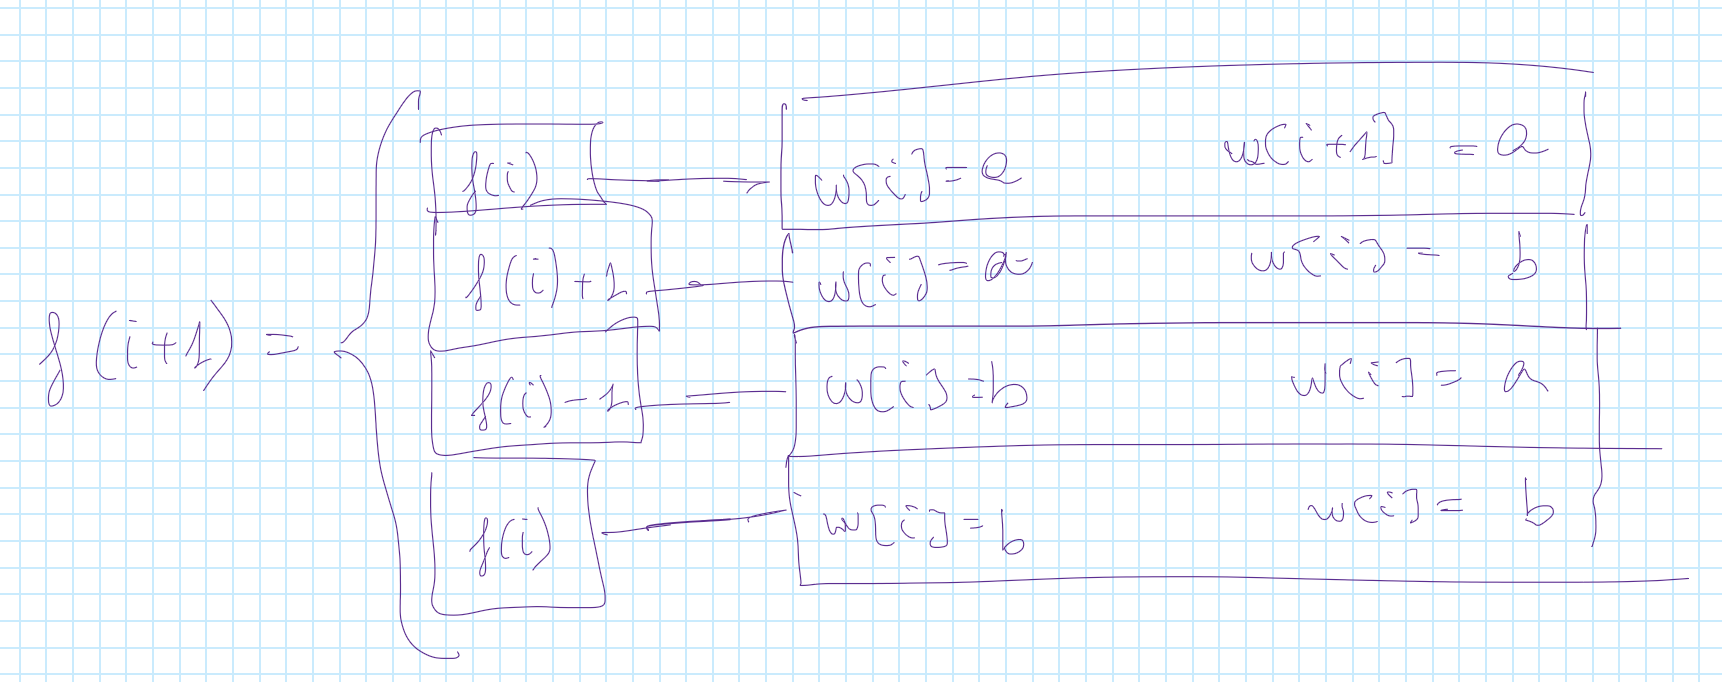 f(i) w[i] = a w[i+1] = a
f(i)+1 w[i] = a w[i] = b
f(i+1) =
f(i)-1 w[i] = b w[i] = a
f(i) w[i] = b w[i] = b